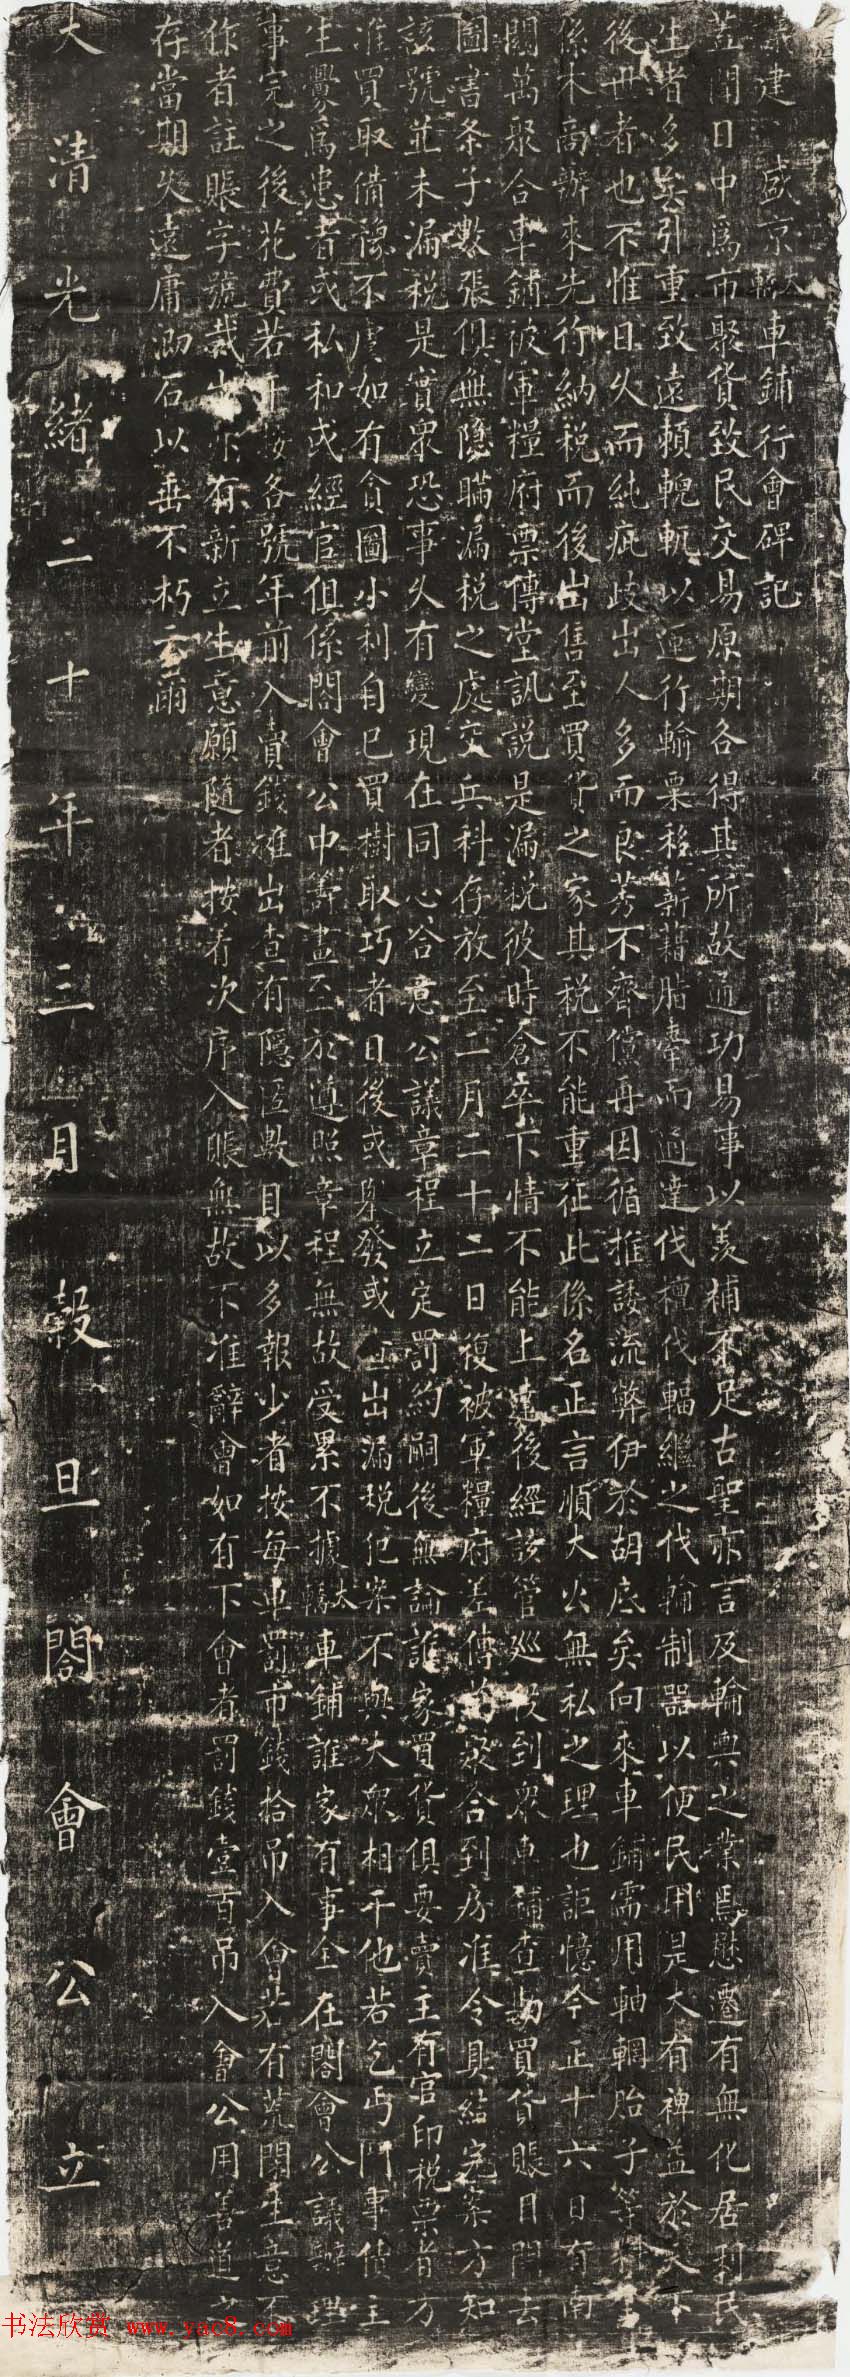 建盛京大轎車鋪行會碑記
蓋聞日中為市聚貨致民交易原期各得其所故通功易事以羨補不足古聖亦言及輪輿之業焉懋遷有無化居利
生者多矣引重致遠賴輗軏以運行輸粟移薪藉脂牽而通達伐檀伐輻繼之伐輪制器以便民用是大有裨益於天下
後世者也不惟日久而純疵歧出人多而良莠不齊儻再因循推諉流弊伊於胡底矣向來車鋪需用軸輞胎子等料
係木商辦來先行納稅而後出售至買貨之家其稅不能重征此係名正言順大公無私之理也詎憶今正十六日有西
關萬聚合車鋪被軍糧府票傳堂訊說是漏稅彼時倉卒下情不能上達後經該管巡役到眾車鋪查勘買貨賬目開
圖書条子數張俱無隐瞞漏稅之處交兵科存放至二月二十二日復被軍糧府差傳萬聚合到房准令具結完案方知
該號並未漏稅是實眾恐事久有變現在同心合意公議章程立定罰約嗣後無論誰家買貨俱要賣主有官印稅票者方
准買取備防不虞如有貪圖小利自己買樹取巧者日後或舉發或查出漏稅犯案不與大眾相干他若乞丐鬥事債主
生釁為患者或私和或經官但係閤會公中籌畫至於遵照章程無故受累不據大轎車鋪誰家有事全在閤會公議辦理
事完之後花費若干按各號年前入賣錢攤出查有隱匿數目以多報少者按每車罰市錢拾吊入會若有荒閉生意不
作者註賬字號裁出亦有新立生意願隨者按着次序入賬無故不准辭會如有下會者罰錢壹百吊入會公用善道
存當期久遠庸泐石以垂不朽云爾
大清光緒二十年三月穀旦閤會公立
书法欣赏 www.yac8.com